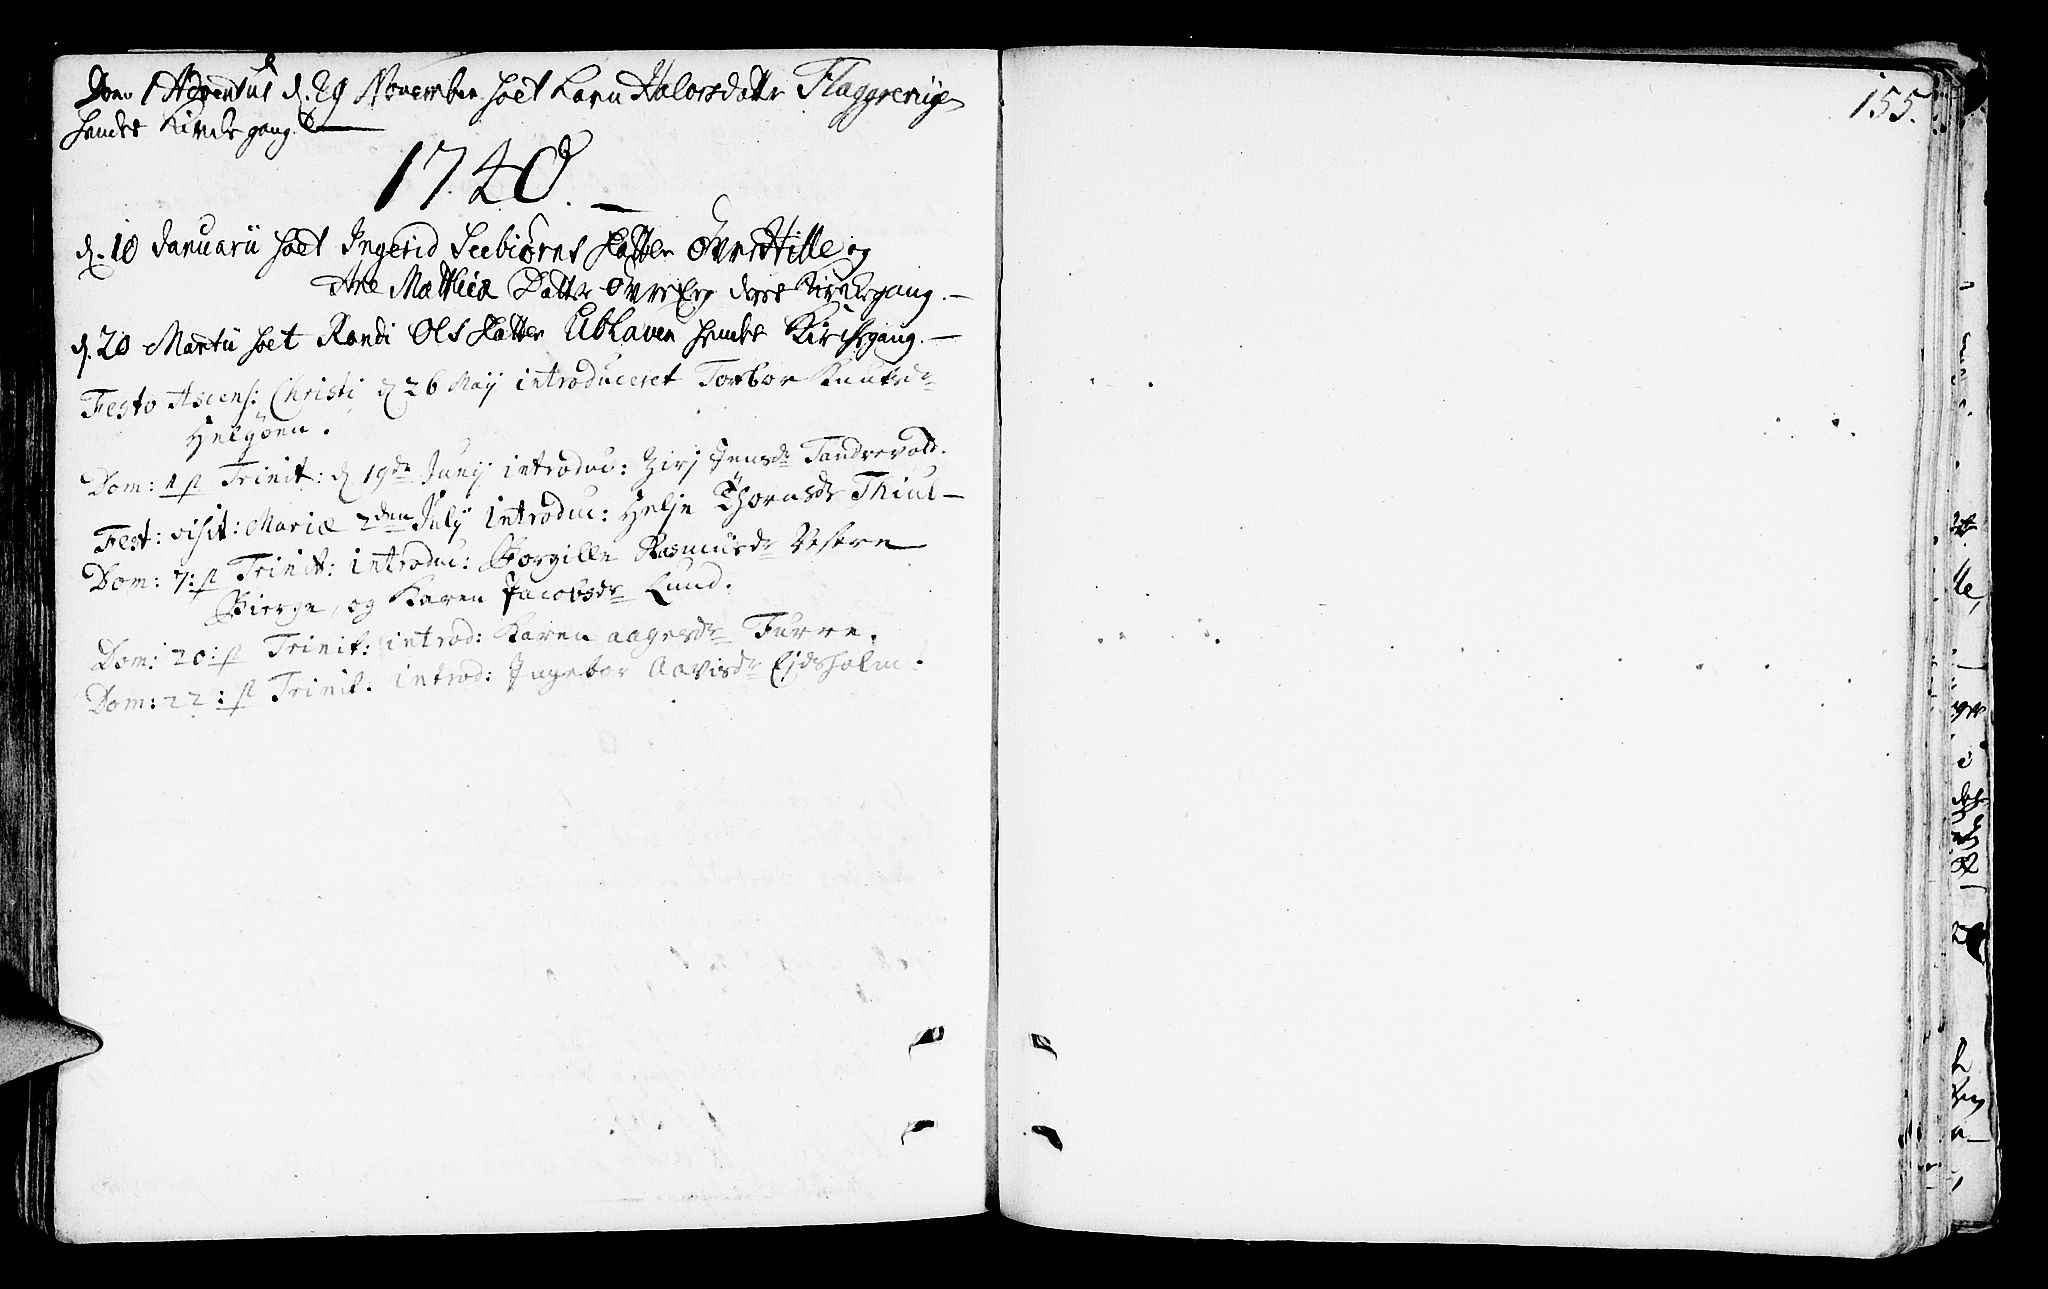 Dom 1 Adventus d. 29 November hoet Karn Halorsdatter Flaggrenige
hendes Kirckegang.
1740.
d. 10 Januarii hoet Ingerid Seebiørns datter Øvre Hille og
Ane Mathiæ Datter Øvre deres Kirckegang.
d. 20 Martii hoet Randi Ols datter hendes Kirckegang.
Festo Ascens: Christi d 26 Maij introduceret Torbor Knutsdr
Helgöen.
Dom: 1 p Trinit: d 19de Junij introduc: Ziri Jensdr Tandrevold.
Fest: visit: Mariæ 2den Julij introduc: Helje Thornsdr Thiul-
Dom: 7: p Trinit: introduc: Borgille Rasmusdr Vestre
Bierge, og Karen Jacobsdr Lund.
Dom: 20: p Trinit: introd: Karen aagesdr Furre.
Dom: 22: p Trinit: introd: Ingebor Aavisdr Ejdsholm.
155.